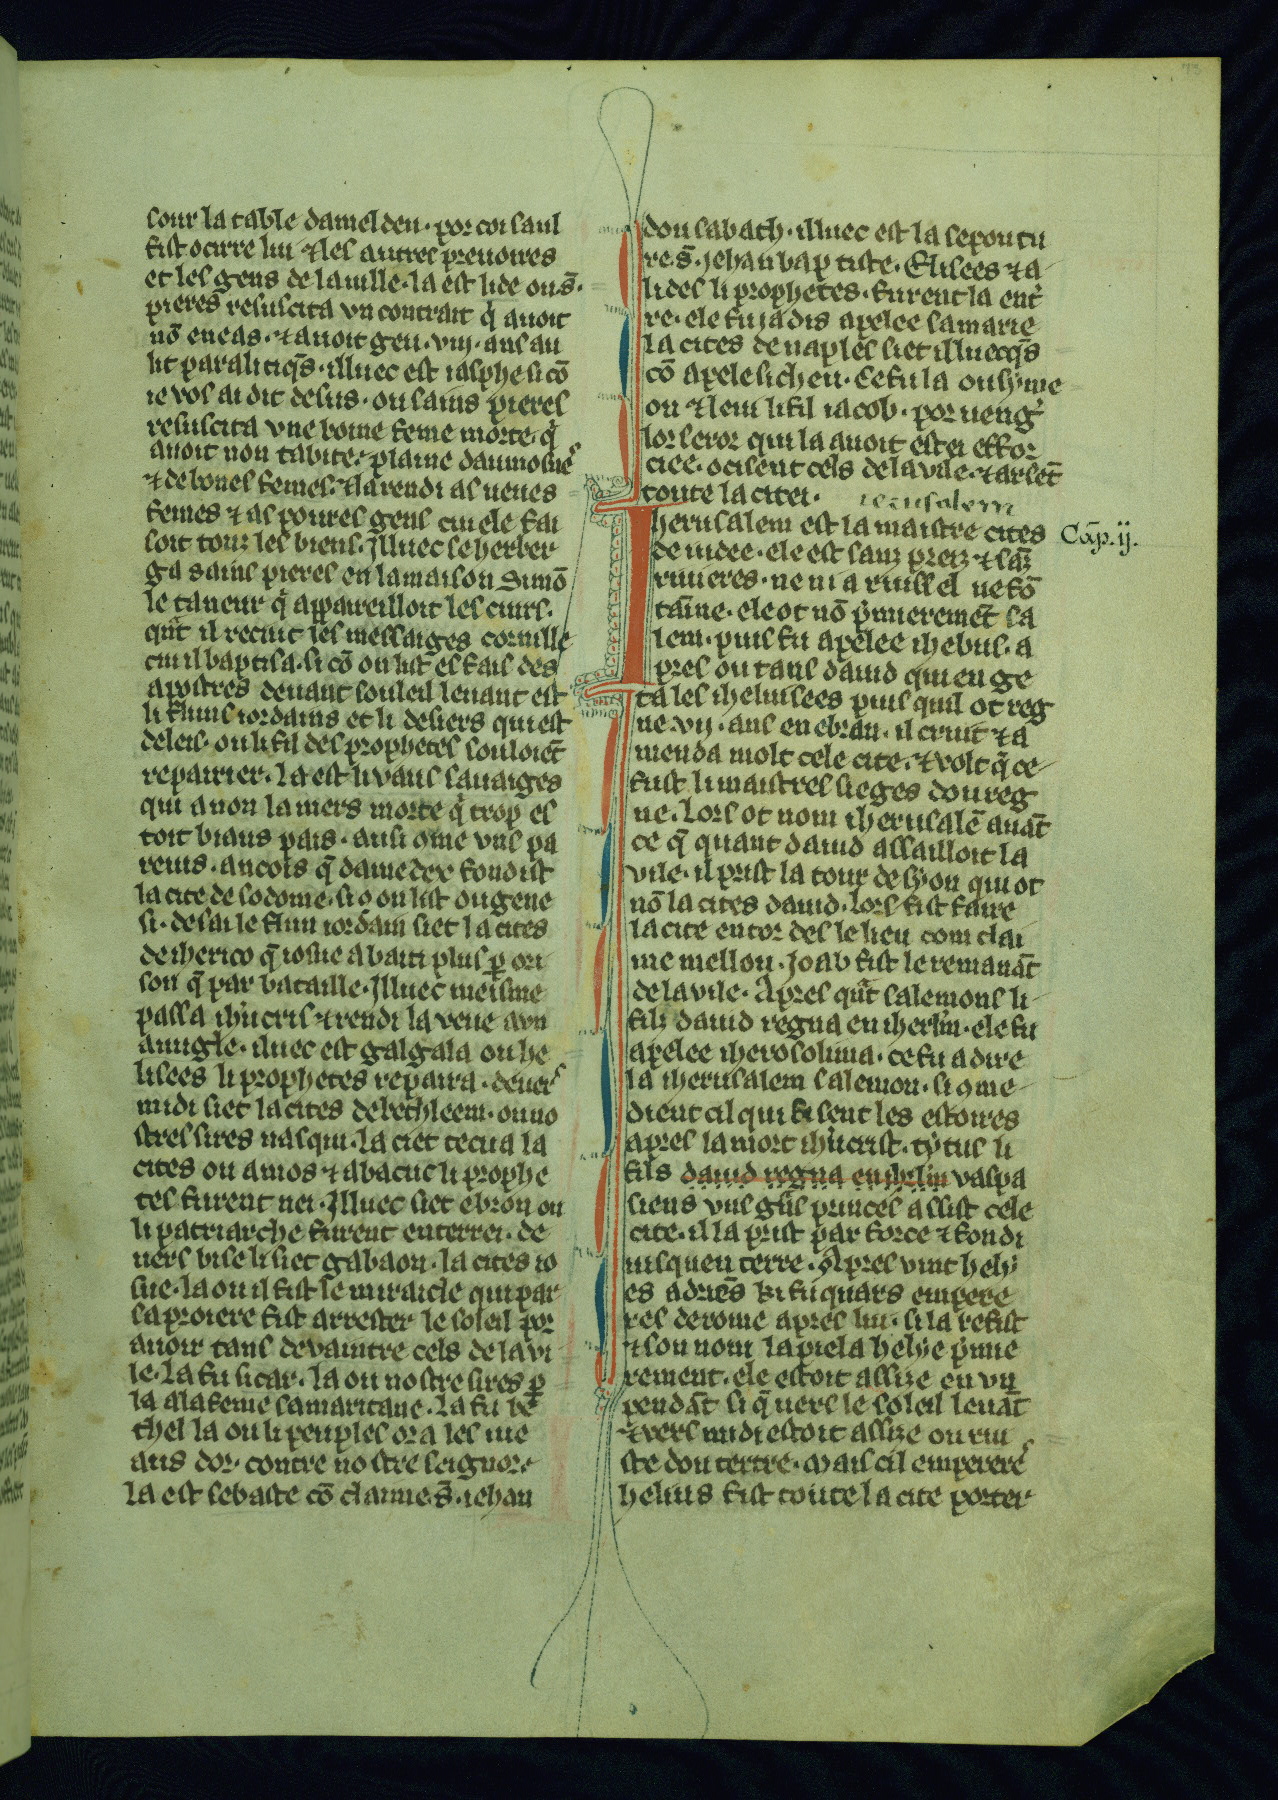 sour la table damelden · por coi saul
fist ocirre lui ⁊ les autres prevoires
et les gens de la uille · la est lide ou .s̄.
pieres resuscita vn contrait q̄ auoit
nō eneas · ⁊ auoit geu · viij · ans au
lit paralitiq̄s · illuec est iasphe si cō
ie vos ai dit desus · ou sains pieres
resuscita vne bone feme morte · q̄
auoit non tabite · plaine daumosnes
⁊ de bones femes · ⁊ la rendi as ueues
femes ⁊ as poures gens cui ele fai
soit touz les biens · Illuec se herber
ga sains pieres en la maison Simō
le taneur q̄ appareilloit les cuirs ·
qn̄t il recuit les messaiges cornille
cui il baptisa · si cō on list es fais des
apostres deuant souleil leuant est
li fluns iordains et li desiers qui est
deleis · ou li fil des prophetes souloiēt
repairier · la est li vaus sauaiges
qui a non la mers morte q̄ trop es
toit biaus pais · ausi ome vns pa
reuis · ancois q̄ damedex fondist
la cite de sodome · si o on list ou gene
si · desai le flun iordain siet la cites
de iherico q̄ iosue abati plus p̄ ori
son q̄ par bataille · Illuec meisme
passa ih̄ucris ⁊ rendi la veue a un
auugle · iluec est galgala ou he
lisees li prophetes repaira · deuers
midi siet la cites de bethleem · ou no
stres sires nasqui · la ciet tecua la
cites ou amos ⁊ abacuc li prophe
tes furent nei · Illuec siet ebron ou
li patriarche furent enterrei · de
uers bise li siet gabaon · la cites io
sue · la ou il fist le miracle qui par
sa proiere fist arrester le soleil por
auoir tans de vaintre cels de la vi
le · la fu sicar · la ou nostre sires p̄
la a la feme samaritane · la fu be
thel la ou li peuples ora les ue
aus dor · contre nostre seignor ·
la est sebaste cō claime .s̄. iehan
dou sabath · illuec est la sepoutu
re .s̄. iehan baptiste · Elisees ⁊ a
lides li prophetes · furent la ent̄
re · ele fu iadis apelee samarie
la cites de naples siet illuecq̄s
cō apele sicheu · Ce fu la ou syme
on ⁊ leui li fil iacob · por ueng̾
lor seror qui la auoit estei effor
ciee · ocisent cels de la vile · ⁊ arsēt
toute la citei · ierusalem
Iherusalem est la maistre cites
Cap̄. ij.
de iudee · ele est sanz preiz ⁊ sāz
riuieres · ne ni a ruissel ne fō
taine · ele ot nō p̄mieremēt sa
lem · puis fu apelee ihebus · a
pres ou tans dauid qui en ge
ta les ihebusees puis quil ot reg
ne · vij · ans en ebran · il cruit ⁊ a
menda molt cele cite · ⁊ volt q̄ ce
fust li maistres sieges dou reg
ne · Lors ot nom iherusalē auāt
ce q̄ quant dauid assailloit la
vile · il prist la tour de syon qui ot
nō la cites dauid · lors fist faire
la cite entor des le lieu com clai
me mellon · Ioab fist le remanāt
de la vile · Apres qn̄t salemons li
filz dauid regna en iherl̄m · ele fu
apelee iherosolima · ce fu a dire
la iherusalem salemon · si ome
dient cil qui fisent les estoires
apres la mort ih̄ucrist · tytus li
fils dauid regna en ihrl̄m vaspa
siens vns grās princes assist cele
cite · il la prist par force ⁊ fondi
iusquen terre · Apres vint hely
es adriēs ki fu quars empere
res de rome apres lui · si la refist
⁊ son nom lapiela helye p̄mie
rement · ele estoit assize en vn
pendāt si q̄ uers le soleil leuāt
⁊ vers midi estoit assize ou rui
ste dou tertre · mais cil empereres
helius fist toute la cite porter